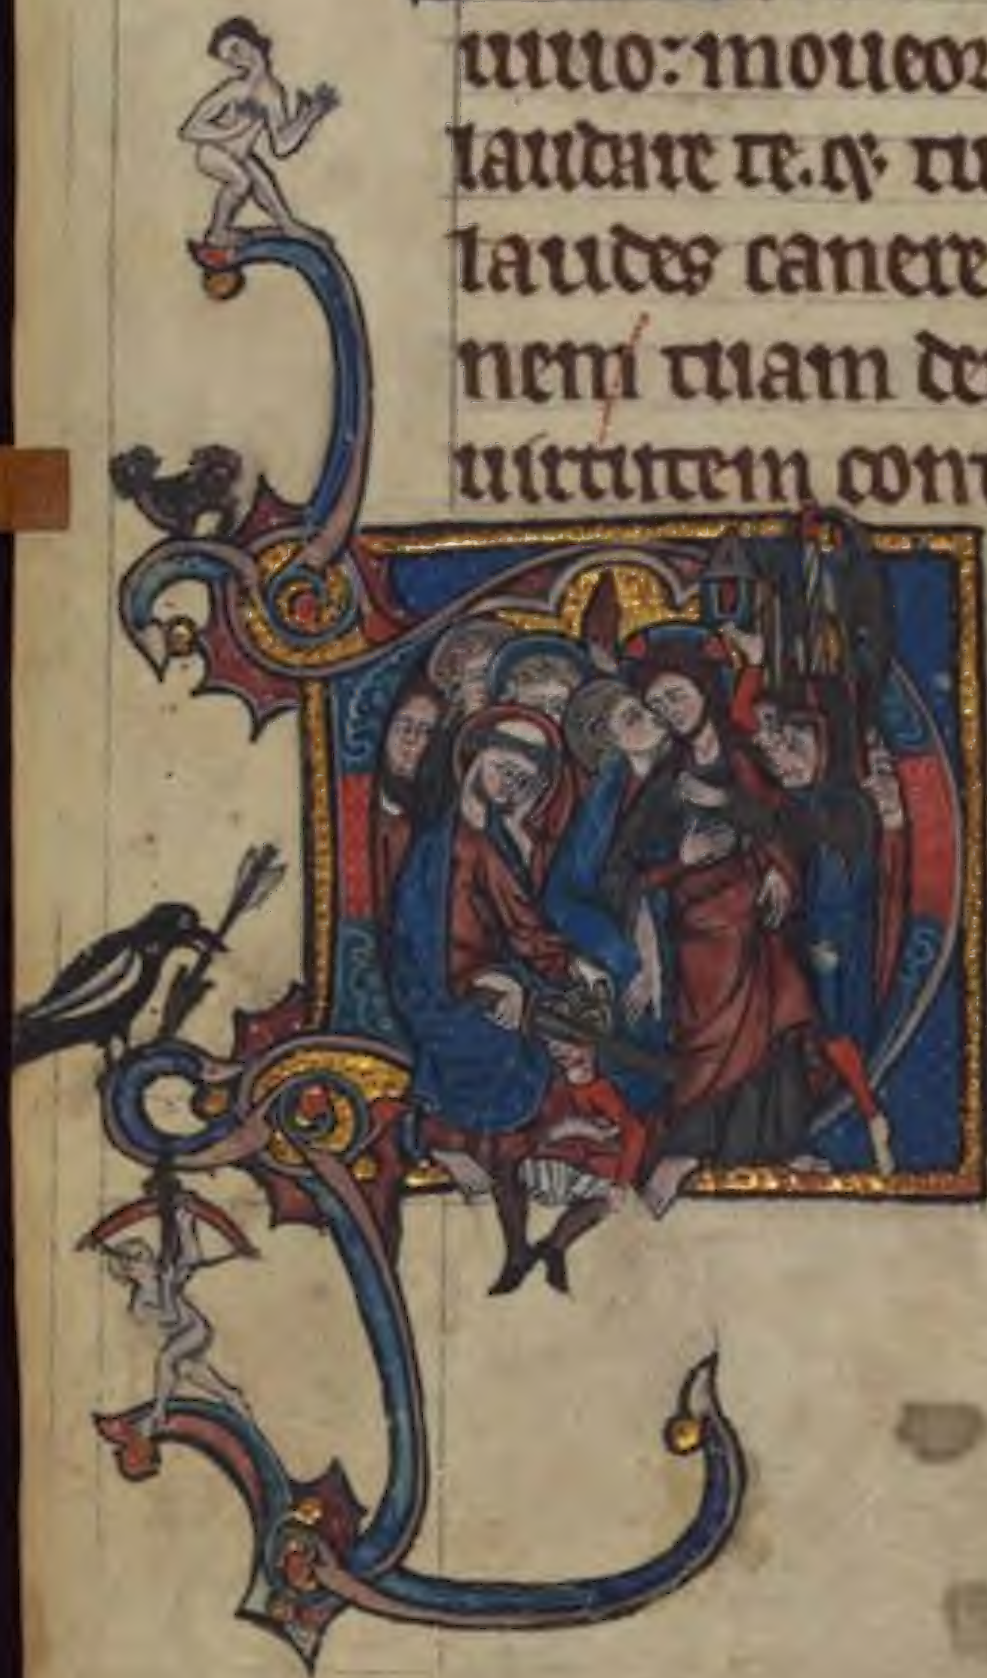 uiuo: moueor
laudare te. qͥ tu
laudes canere
nem tuam de
uirtutem cont